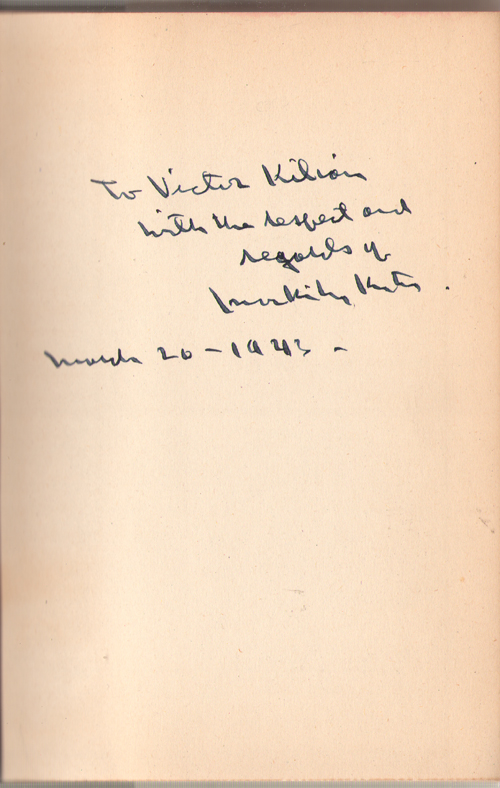 To Victor Kilian
with the respect and
regards of
March 20 - 1943 -